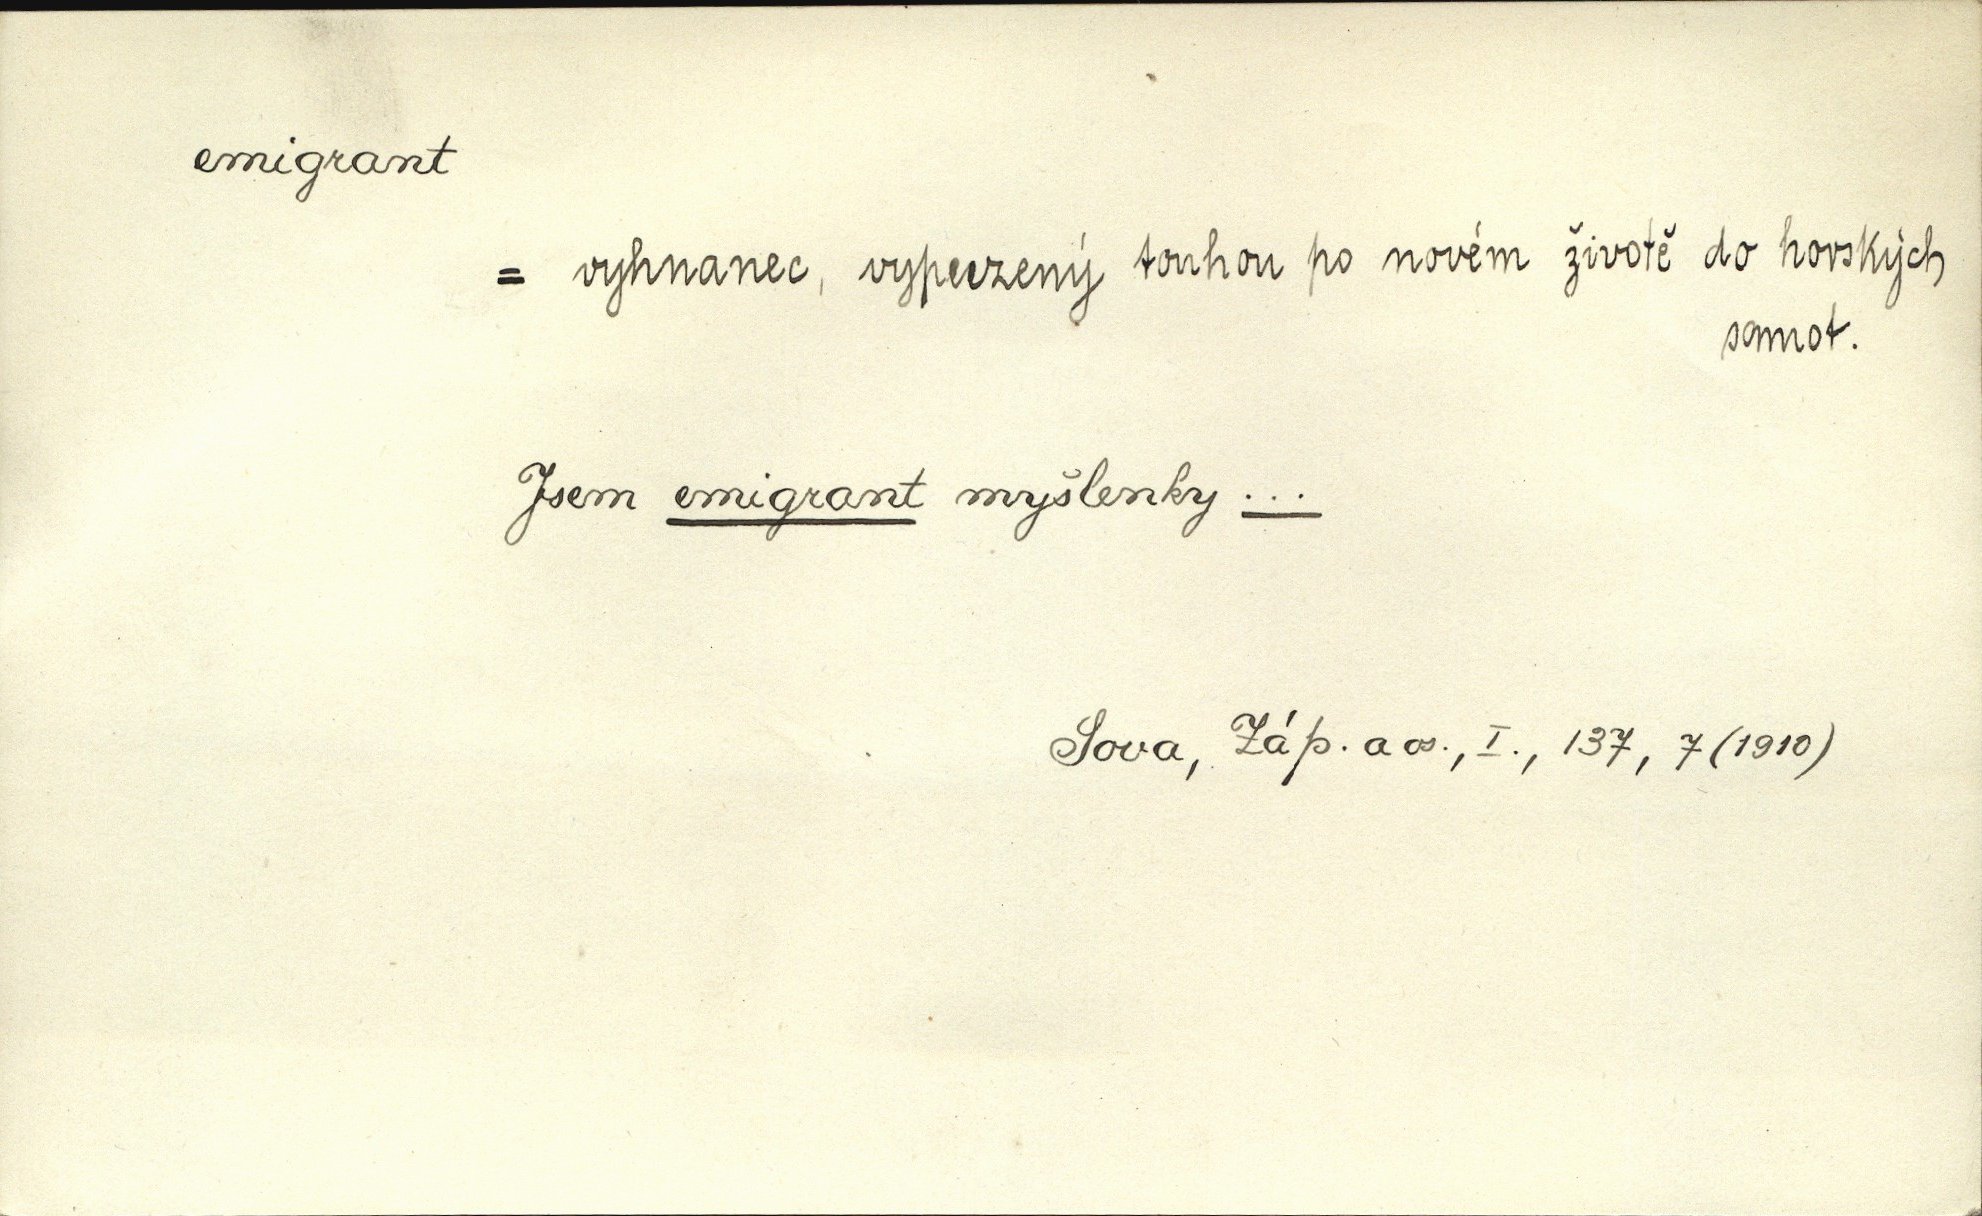 emigrant
= vyhnanec, vypuzený touhou po novém životě do horských
samot.
Jsem emigrant myšlenky ...
Sova, Záp. a os., I., 137, 7 (1910)